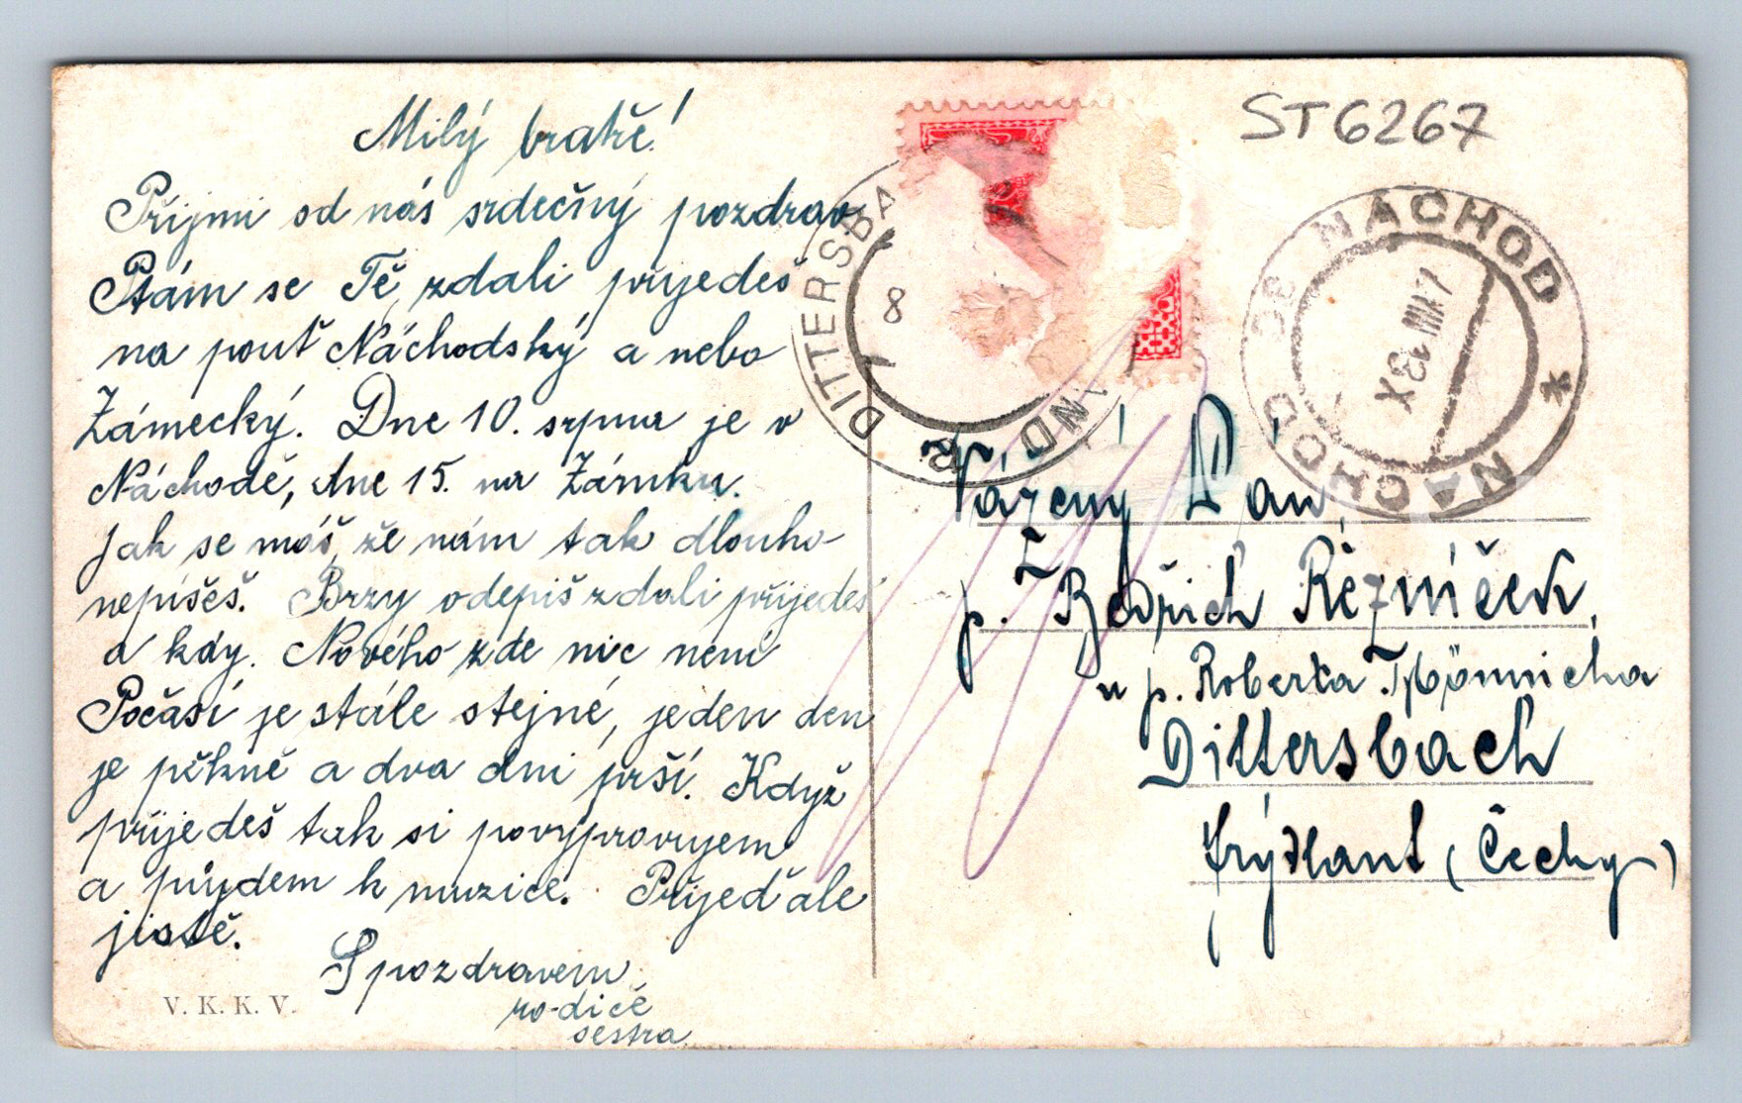 Milý bratře!
Přijmi od nás srdečný pozdrav
Ptám se Tě, zdali přijedeš
na pouť Náchodský a nebo
Zámecký. Dne 10. srpna je v
Náchodě, dne 15. na Zámku.
Jak se máš, že nám tak dlouho
nepíšeš. Brzy odepiš zdali přijedeš
a kdy. Nového zde nic není
Počasí je stále stejné, jeden den
je pěkně a dva dni prší. Když
přijedeš tak si povypravujem
a půjdem k muzice. Přijeď ale
jistě.
S pozdravem
rodiče
sestra
V. K. K. V.
ST6267
DITTERSBA
8
NÁCHOD
NACHOD
7.VIII 13 X
Vážený Pán,
p. Bedřich Řezníček,
u p. Roberta
Dittersbach
Frýdlant (Čechy)